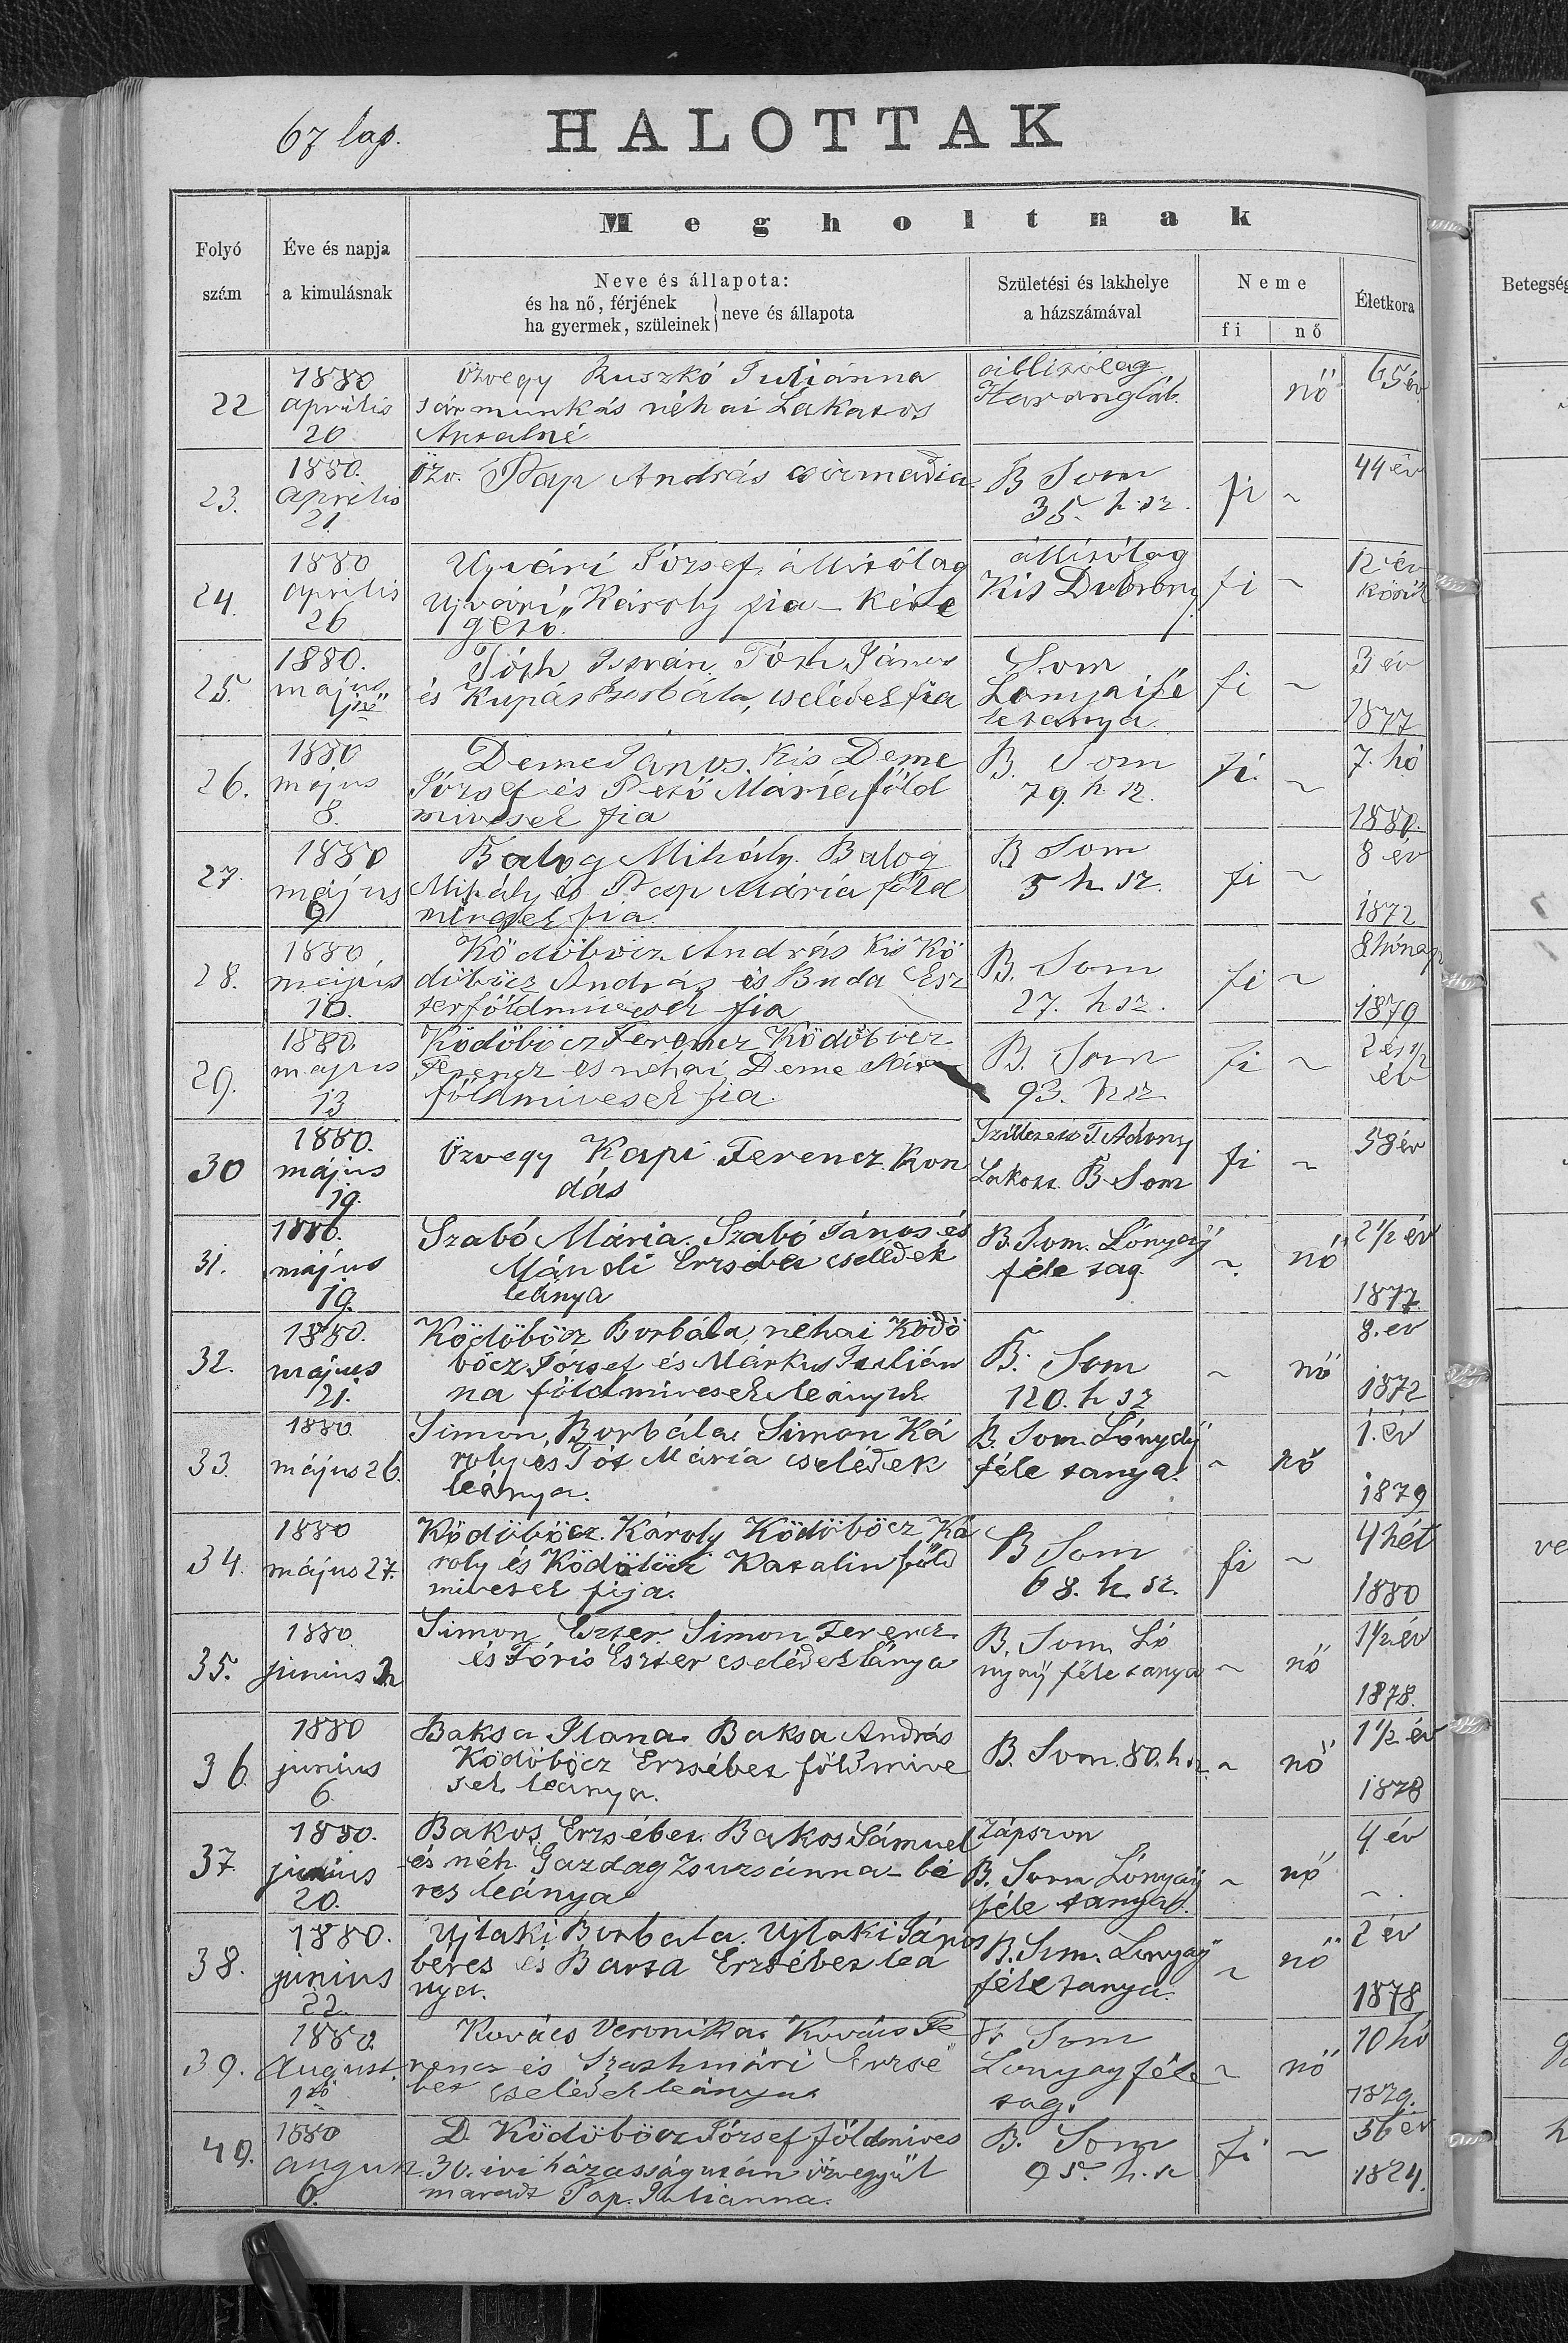 67 lap.
HALOTTAK
Megholtnak
Folyó szám
Éve és napja a kimulásnak
Neve és állapota:
és ha nő, férjének
ha gyermek, szüleinek } neve és állapota
Születési és lakhelye
a házszámával
Neme
fi nő
Életkora
Betegség
22 1880 április 20 özvegy Ruszkó Juliánna
sármunkás néhai Lakatos
Antalné
állitólag
Harangláb.
nő 65 év
23. 1880. április 21 özv. Pap András csizmadia
B Som
35. h. sz.
fi ~ 44 év
24. 1880 április 26 Ujvári József, állitólag
Ujvári Károly fia - kére
gető.
állitólag
Kis Dobrony
fi ~ 12 év
körül
25. 1880. május Tóth István. Tóth János
és Kupás Borbála, cselédek fia
Som
Lónyaifé
le tanya
fi ~ 3 év
1877
26. 1880 május 8. Deme János. Kis Deme
József és Pető Mária föld
mivesek fia
B. Som
79. h sz.
fi. ~ 7. hó
1880.
27. 1880 május 9 Balog Mihály. Balog
Mihály és Pap Mária föld
mivesek fia.
B Som
5 h. sz.
fi ~ 8 év
1872
28. 1880 május 10. Ködöböcz András Kis Kö
döböcz András és Buda Esz
ter földmivesek fia
B. Som
27. h sz.
fi ~ 8 hónap
1879
29. 1880. május 13 Ködöböcz Ferencz Ködöböcz
Ferencz és néhai Deme
földmivesek fia.
B. Som
93. h sz.
fi ~ 2 és 1/2
év
30 1880. május 19. Özvegy Kapi Ferencz Kon
dás
Születet T. Adony
Lakott B Som
fi ~ 58 év
31. 1880. május 19. Szabó Mária. Szabó János és
Mándi Erzsébet cselédek
leánya
B. Som. Lónyaÿ
féle tag.
~. nő 2 1/2 év
1877
32. 1880. május 21. Ködöböcz Borbála, néhai Ködö
böcz József és Márkus Julián
na földmivesek leányuk
B. Som
120. h sz
~ nő 8. év
1872
33. 1880. május 26. Simon Borbála Simon Ká
roly és Tót Mária cselédek
leánya.
B. Som. Lónyaÿ
féle tanya.
~ nő 1. év
1879
34. 1880 május 27. Ködöböcz. Károly Ködöböcz Ká
roly és Ködöböcz Katalin föld
mivesek fija.
B Som
68. h. sz.
fi ~ 4 hét
1880
35. 1880. junius 2 Simon Eszter. Simon Ferencz
és Fóris Eszter cselédek lánya
B. Som Ló
nyaÿ féle tanya
~ nő 1 1/2 év
1878.
36. 1880 junius 6. Baksa Ilona. Baksa András
Ködöböcz Erzsébet földmive
sek leánya.
B. Som. 80. h sz.
~ nő 1 1/2 év
1878
37. 1880. junius 20. Bakos Erzsébet. Bakos Sámuel
és néh. Gazdag Zsuzsánna - bé
res leánya
Zápszon
B. Som Lónyaÿ
féle tanya.
~ nő 4. év
~.
38. 1880. junius 22. Ujlaki Borbala. Ujlaki János
béres és Barta Erzsébet leá
nya.
B. Som. Lónyaÿ
féle tanya.
~ nő 2 év
1878
39. 1880. August. 1ső Kovács Veronika. Kovács Fe
rencz és Szathmári Erzsé
bet cselédek leánya
B. Som
Lonyay féle
tag.
~ nő 10 hó
1879.
40. 1880 6. D. Ködöböcz József földmives
30. évi házasság után özvegyül
maradt Pap Juliánna.
B. Som
95. h. sz
fi ~ 56 év
1824.